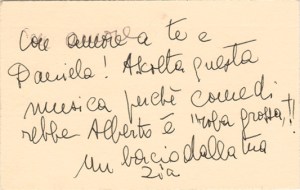 con amore a te e
Daniela! Ascolta questa
musica perchè come di
rebbe Alberto è "roba grossa"!!
Un bacio dalla tua
zia